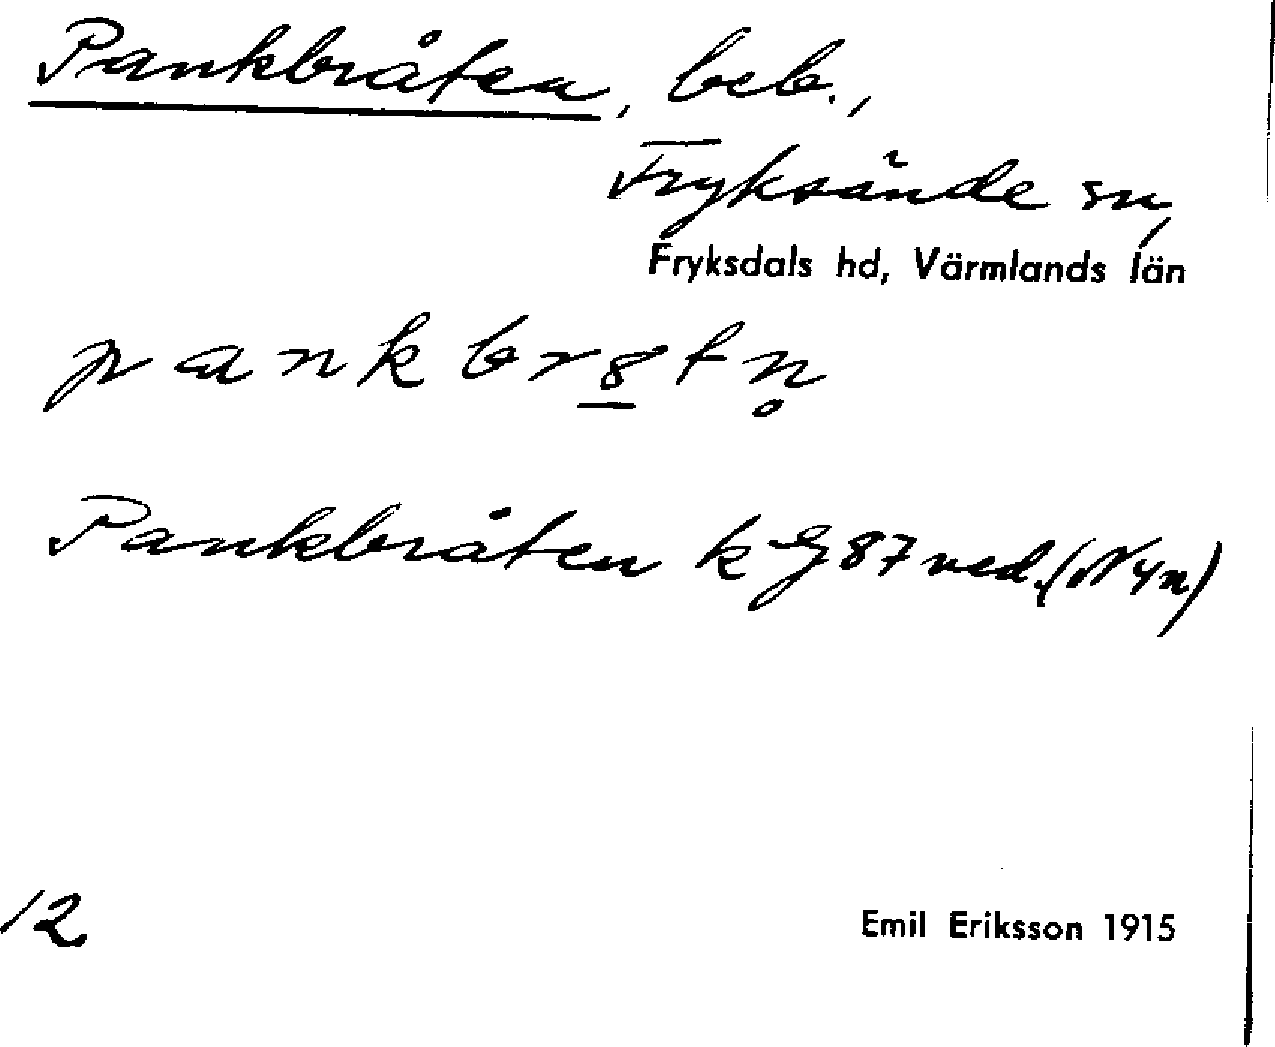 Pankbråten, beb.,
Fryksände sn,
Fryksdals hd, Värmlands län
pankbr8tn̥
Pankbråten k G 87 ned. (N 4n)
12
Emil Eriksson 1915